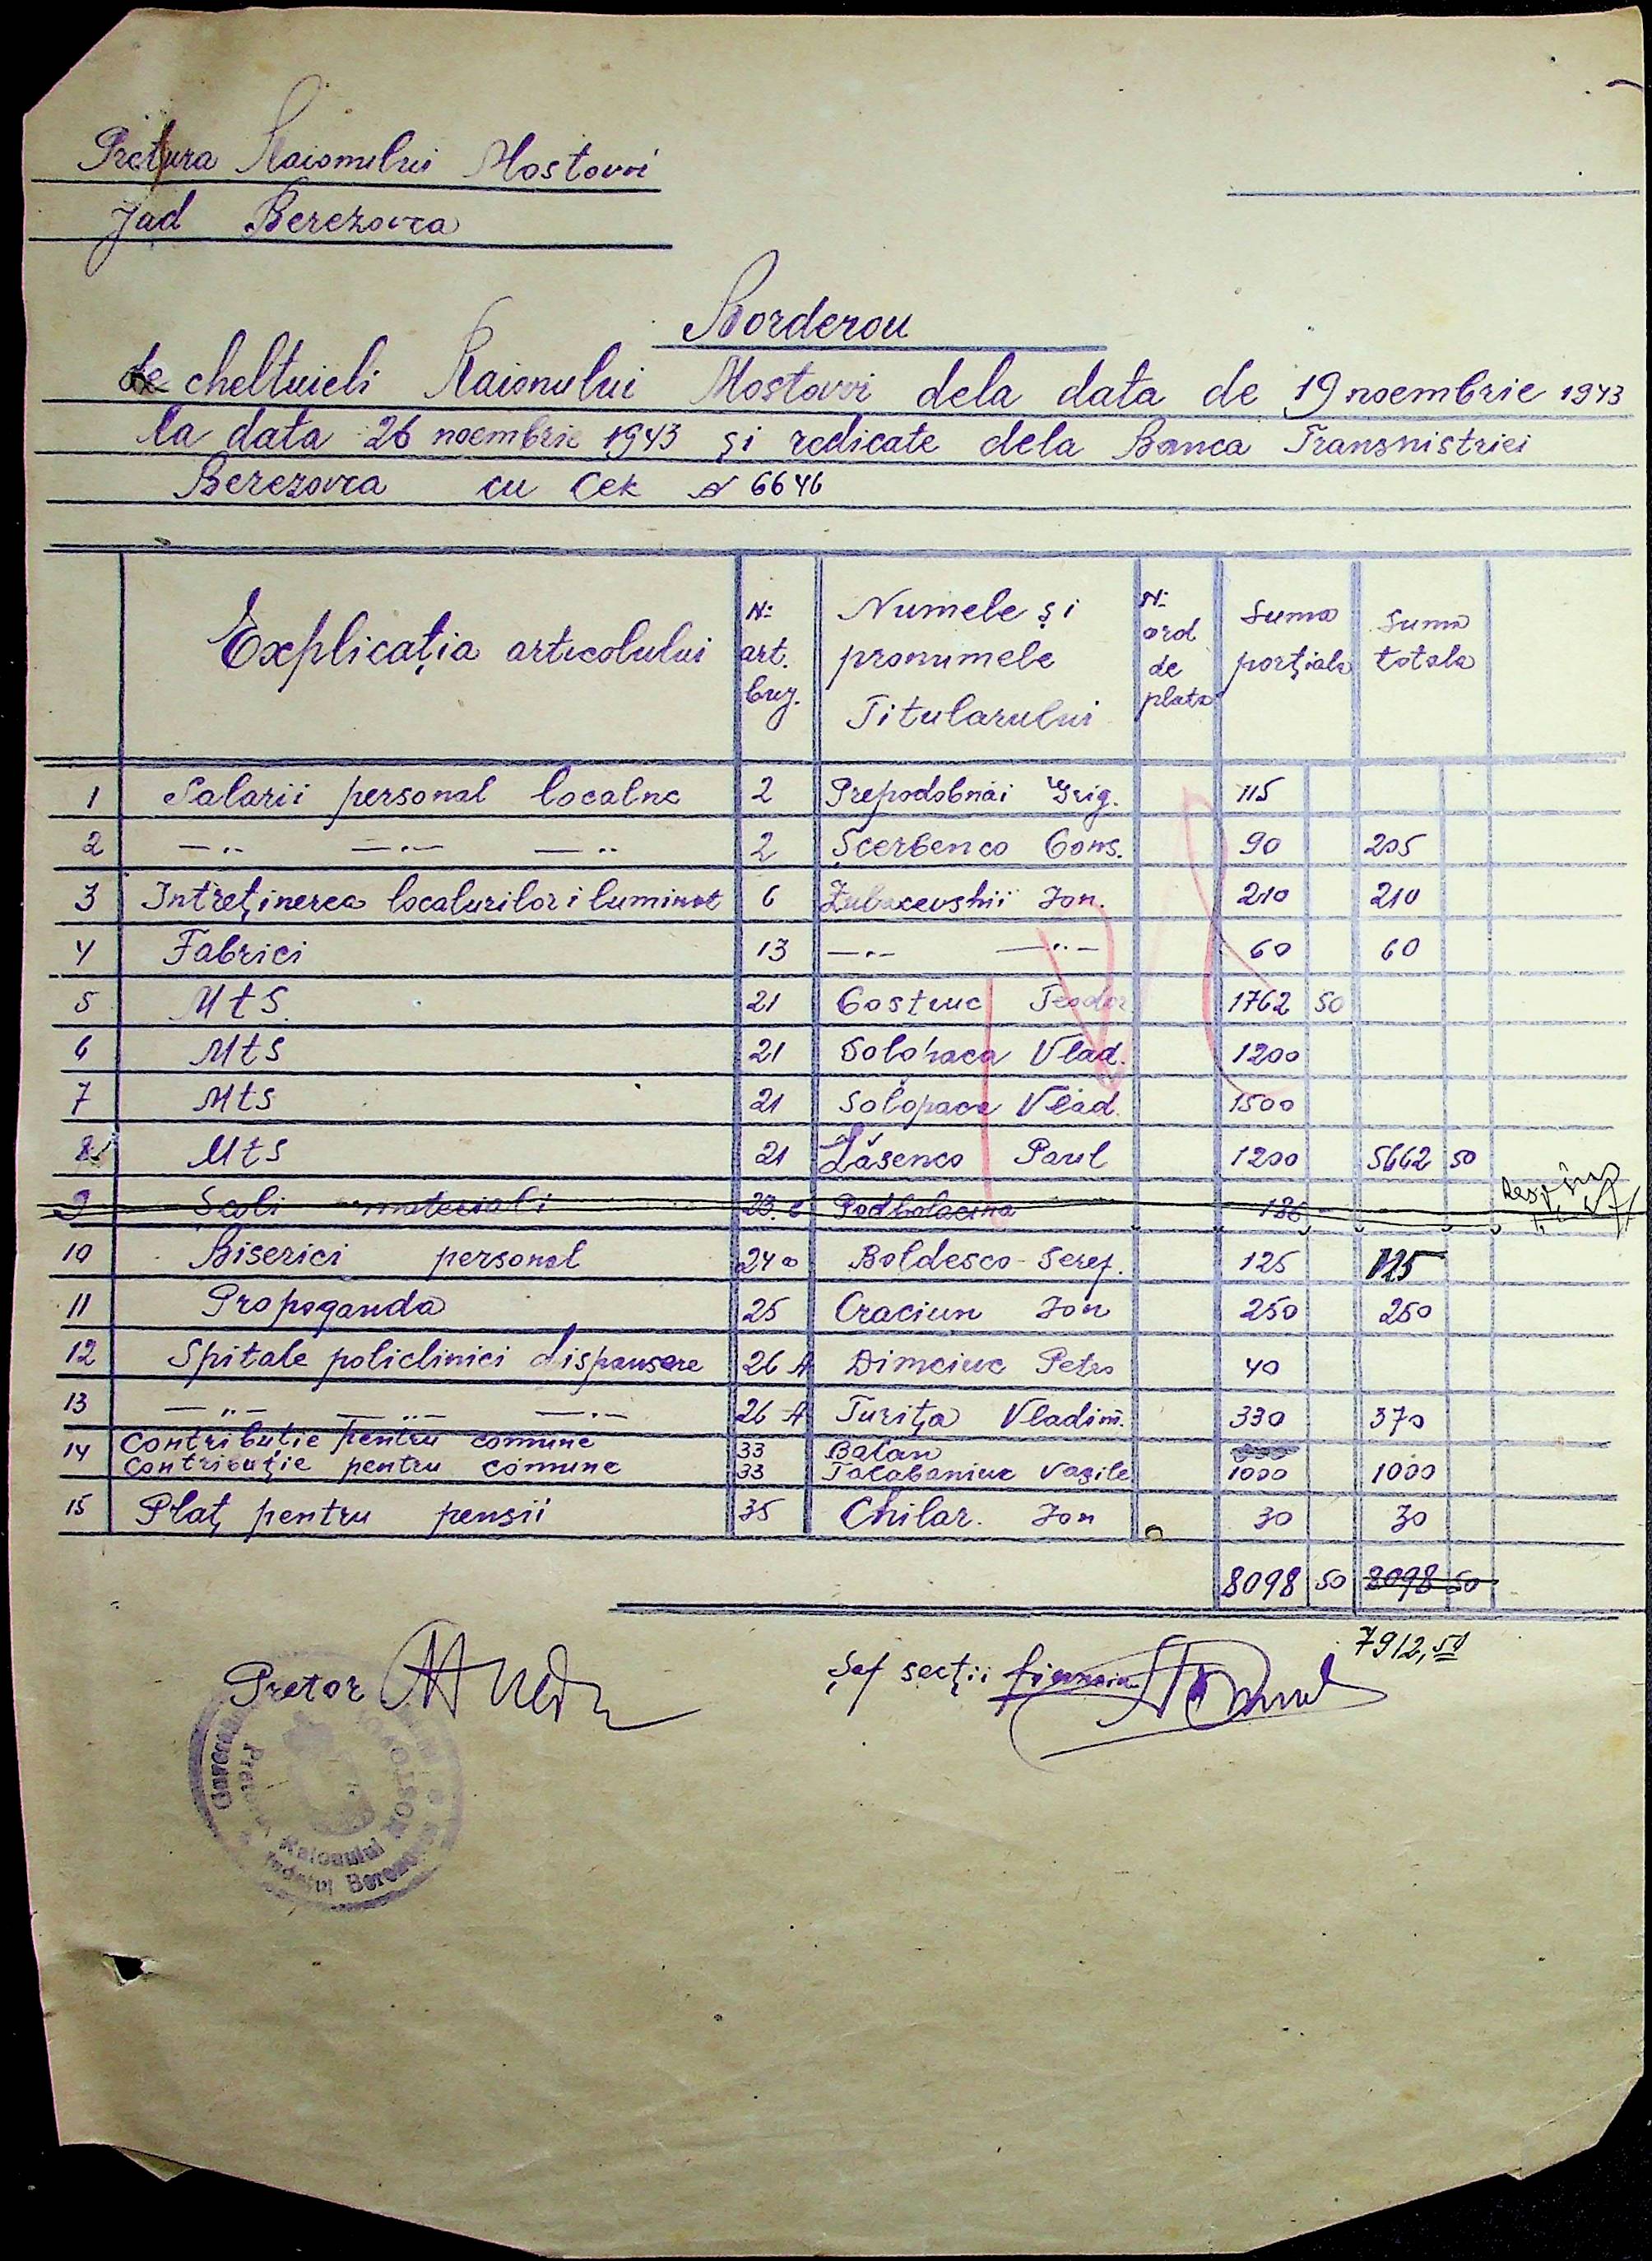 Pretura Raionului Mostovoi
Jud Berezovca
Borderou
de cheltuieli Raionului Mostovoi dela data de 19 noembrie 1943
la data 26 noembrie 1943 și redicate dela Banca Transnistriei
Berezovca cu Cek N 6646
Explicația articolului N: art. bug. Numele și pronumele Titularului N: ord de plata Suma porțiala Suma totala
1 Salarii personal localnc 2 Prepodobnai Grig. 115
2 —..— —..— —..— 2 Șcerbenco Cons. 90 205
3 Intreținerea localurilor iluminat 6 Ion. 210 210
4 Fabrici 13 —..— —..— 60 60
5 MtS. 21 Costiuc Teodor 1762 50
6 MtS 21 Solopaca Vlad. 1200
7 MtS 21 Solopaca Vlad. 1500
8 MtS 21 Lăsenco Pavel 1200 5662 50
9 Școli materiali 23. c Podbolacina 186
10 Biserici personal 24 a Boldesco-Seref. 125 125
11 Propoganda 25 Craciun Ion 250 250
12 Spitale policlinici dispansere 26 A Dimciuc Petro 40
13 —..— —..— —..— 26 A Turița Vladim. 330 370
14 Contribuție pentru comune 33 Balan
Contribuție pentru comune 33 Tacabaniuc Vasile 1000 1000
15 Plaț pentru pensii 35 Chilar. Ion 30 30
8098 50 8098 50
7912,50
Pretor Șef secții financia
Guvernământul
Pretura Raionului
MOSTOVOI
Județul Berezovca